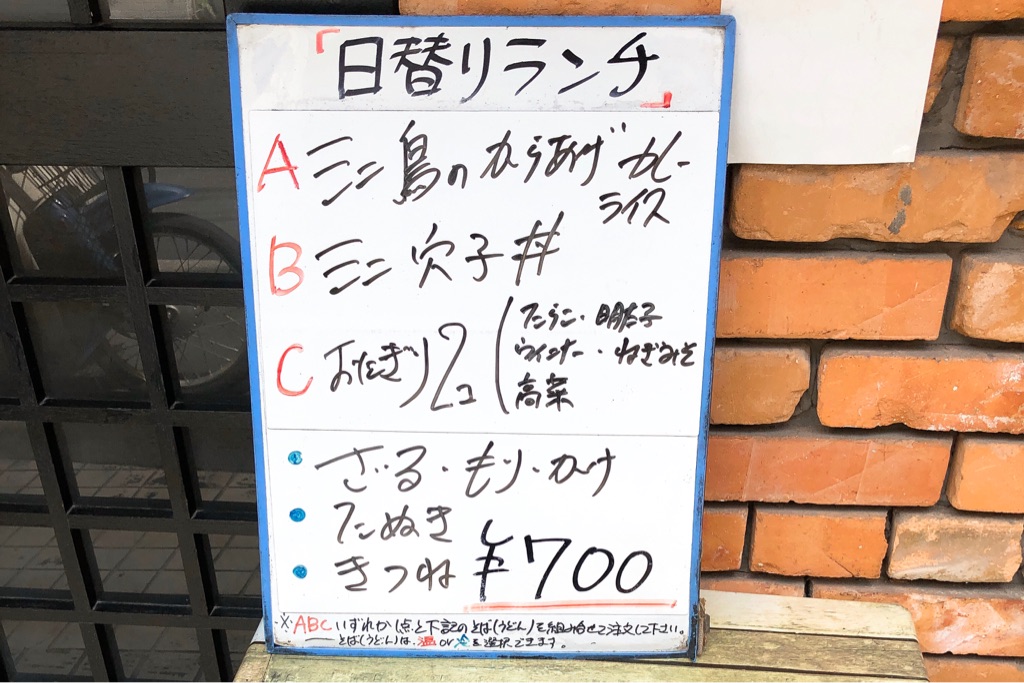 「日替りランチ」
A ミニ鳥のからあげカレー
ライス
B ミニ穴子丼
C おにぎり2コ
たらこ・明太子
ウインナー・ねぎみそ
高菜
・ざる・もり・かけ
・たぬき
・きつね ¥700
※ABCいずれか1点と下記のそば(うどん)を組み合せて注文して下さい。
そば(うどん)は、温or冷を選択できます。